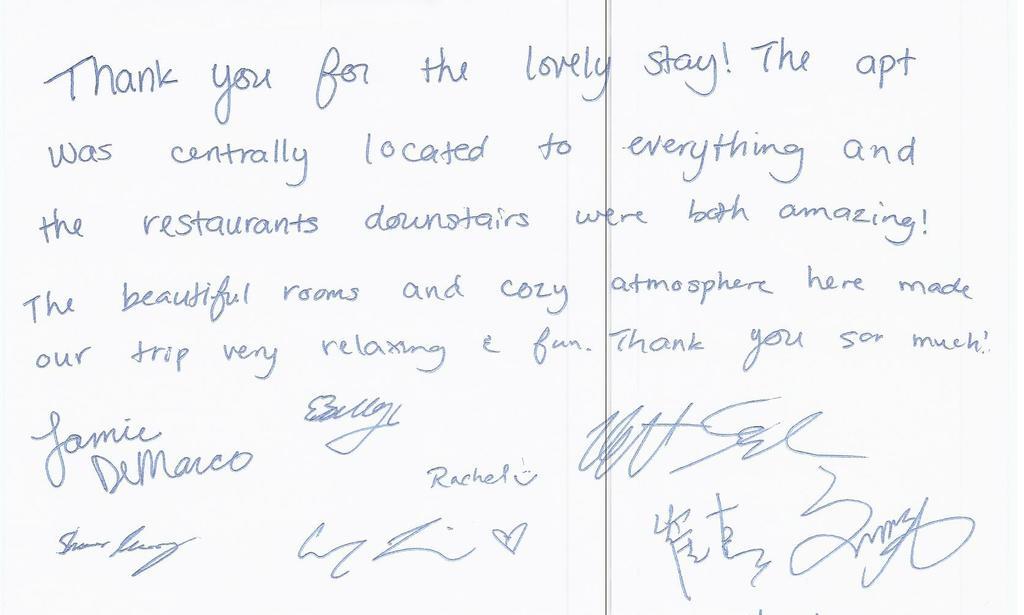 Thank you for the lovely stay! The apt
was centrally located to everything and
the restaurants downstairs were both amazing!
The beautiful rooms and cozy atmosphere here made
our trip very relaxing & fun. Thank you so much!
Jamie
DeMarco
Rachel